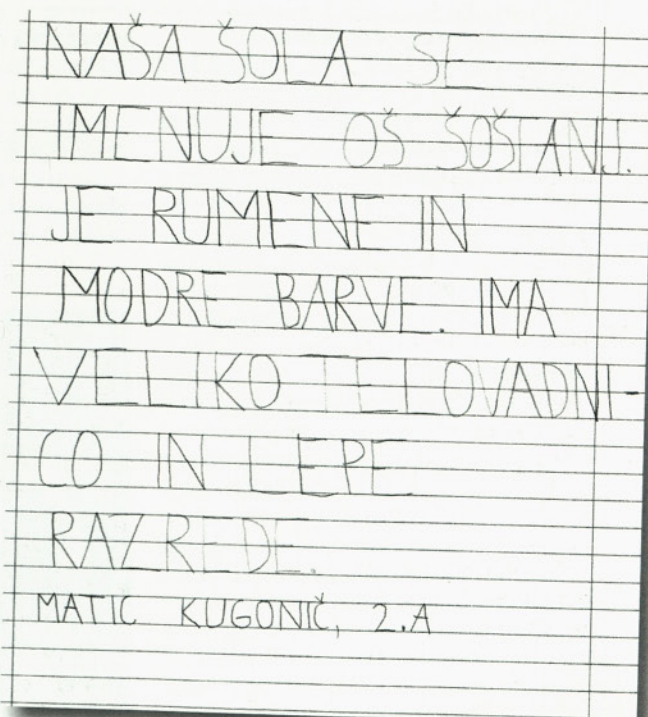 NAŠA ŠOLA SE
IMENUJE OŠ ŠOŠTANJ.
JE RUMENE IN
MODRE BARVE. IMA
VELIKO TELOVADNI-
CO IN LEPE
RAZREDE.
MATIC KUGONIČ, 2.A